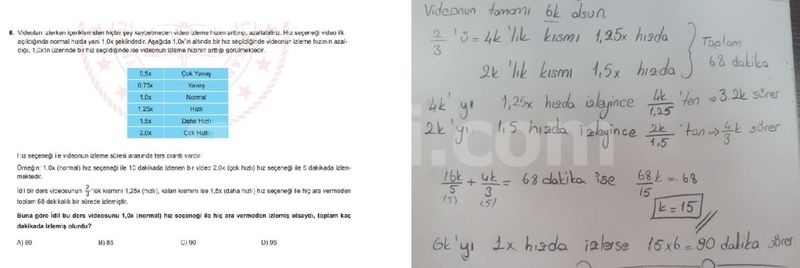 6. Videoları izlerken içeriklerinden hiçbir şey kaybetmeden video izleme hızını arttırıp, azaltabiliriz. Hız seçeneği video ilk
açıldığında normal hızda yani 1.0x şeklindedir. Aşağıda 1.0x'in altında bir hız seçildiğinde videonun izleme hızının azal-
dığı, 1,0x'in üzerinde bir hız seçildiğinde ise videonun izleme hızının arttığı görülmektedir.
0,5x Çok Yavaş
0.75x Yavaş
1.0x Normal
1.25x Hızlı
1.5x Daha Hızlı
2,0x Çok Hızlı
Hız seçeneği ile videonun izleme süresi arasında ters orantı vardır.
Örneğin: 1.0x (normal) hız seçeneği ile 10 dakikada izlenen bir video 2.0x (çok hızlı) hız seçeneği ile 5 dakikada izlen-
mektedir.
İdil bir ders videosunun 2/3 'lük kısmını 1,25x (hızlı), kalan kısmını ise 1,5x (daha hızlı) hız seçeneği ile hiç ara vermeden
toplam 68 dakikalık bir sürede izlemiştir.
Buna göre İdil bu ders videosunu 1,0x (normal) hız seçeneği ile hiç ara vermeden izlemiş olsaydı, toplam kaç
dakikada izlemiş olurdu?
A) 80 B) 85 C) 90 D) 95
Videonun tamamı 6k olsun.
2/3 'ü = 4k 'lık kısmı 1,25x hızda
2k 'lık kısmı 1,5x hızda
Toplam
68 dakika
4k' yı 1,25x hızda izleyince 4k/1,25 'ten ⇒ 3.2k sürer
2k' yı 1,5 hızda izleyince 2k/1,5 'tan ⇒ 4/3 k sürer
16k/5 + 4k/3 = 68 dakika ise 68k/15 = 68
(3) (5)
k = 15
6k'yı 1x hızda izlerse 15x6 = 90 dakika sürer.
i.com